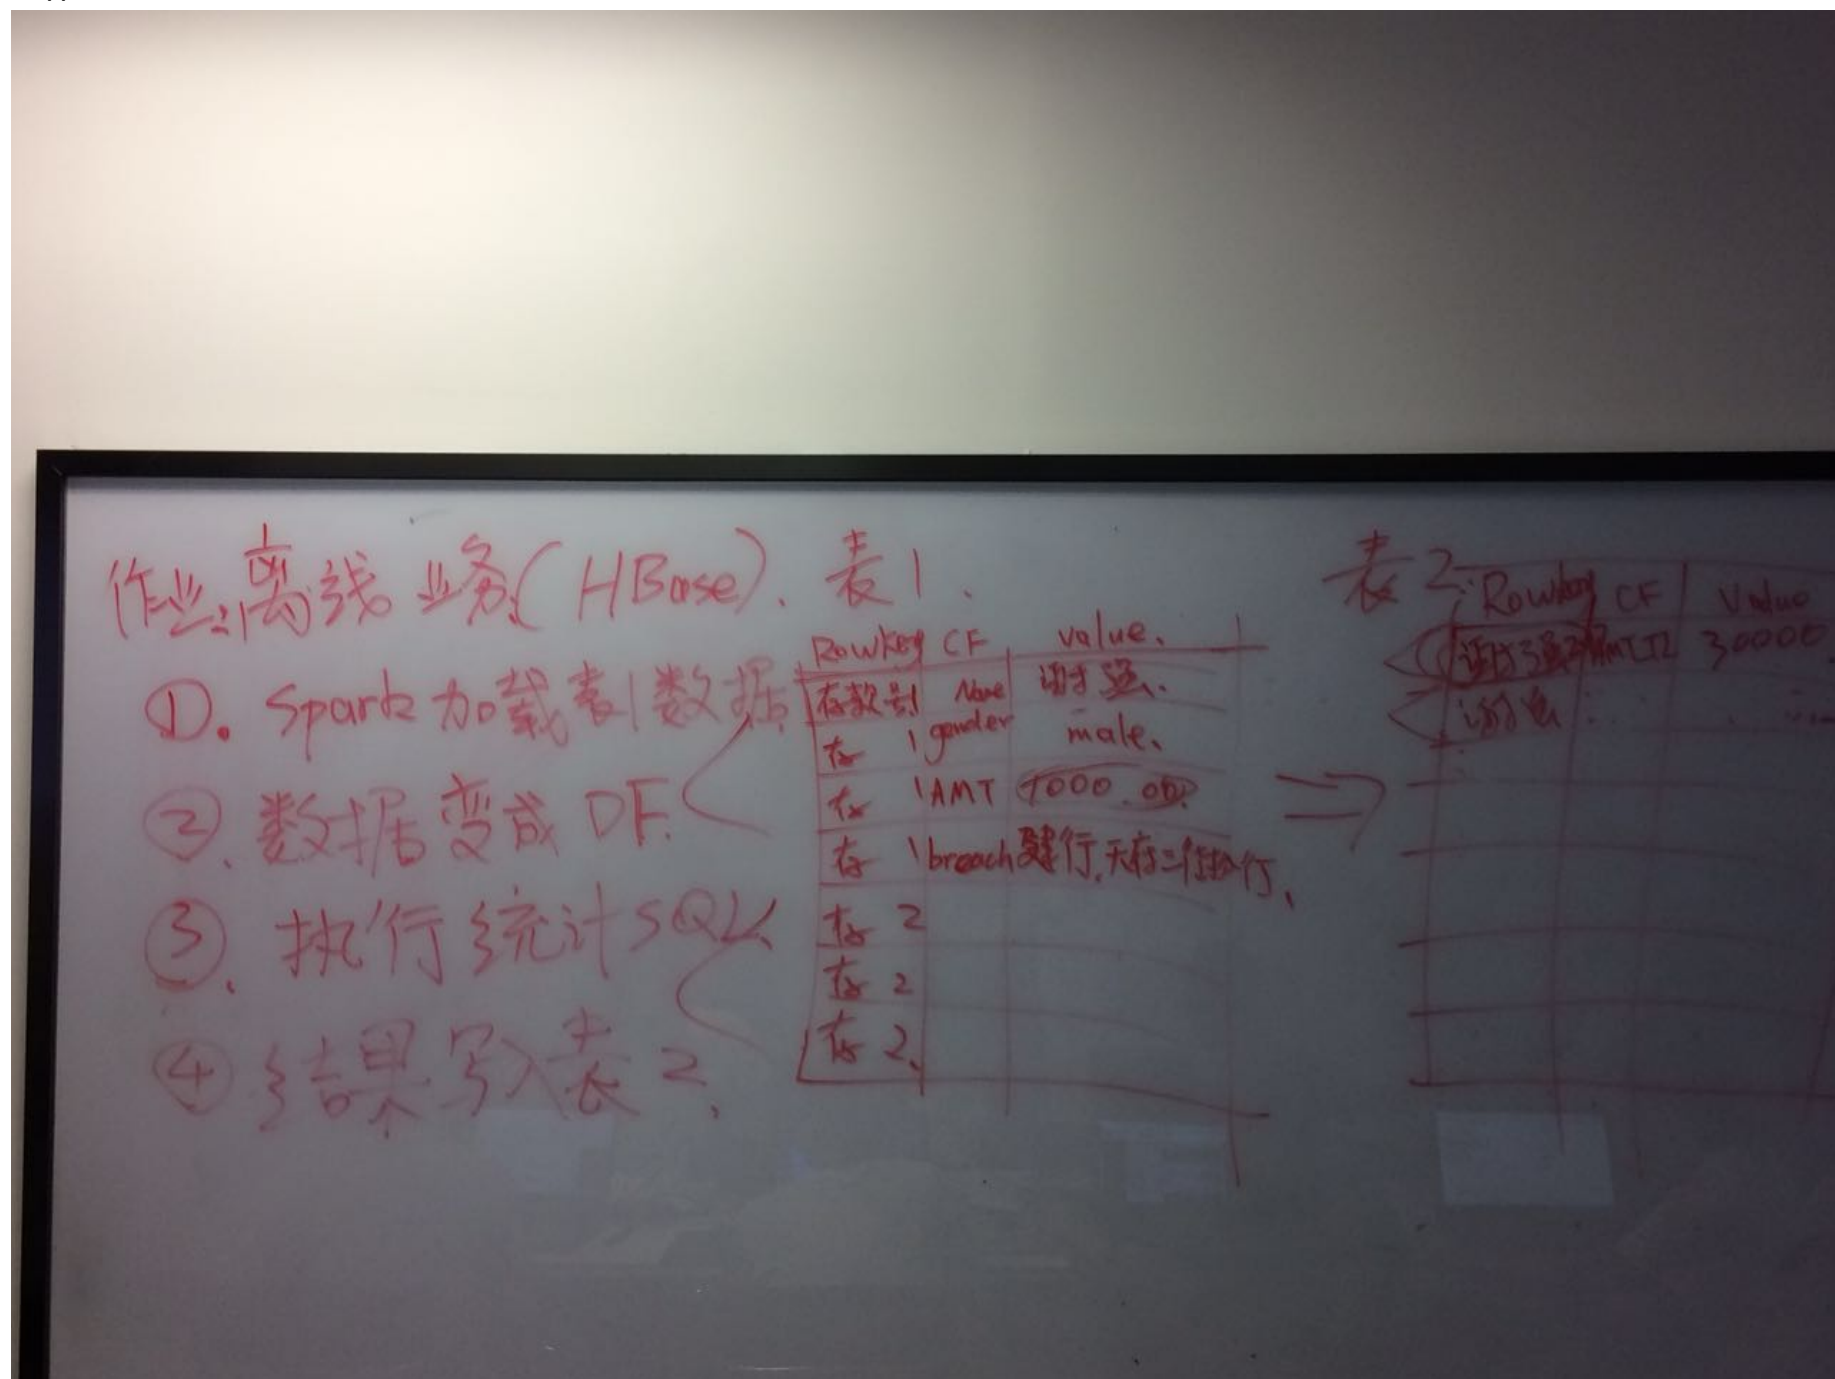 作业:离线业务(HBase).
①. Spark加载表1数据
②. 数据变成DF.
③. 执行统计SQL
④ 结果写入表2.
表1.
Rowkey CF value.
存款号1 Name 谢强.
存 1 gender male.
存 1 AMT 1000.00
存 1 breach 建行.
存 2
存 2
存 2.
表2:
Rowkey CF Value
30000